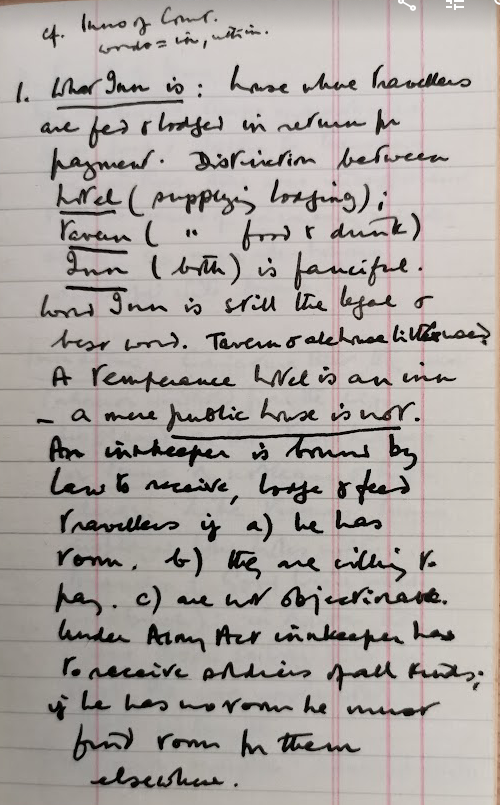 cf. Inns of Court.
words = in, within.
1. What Inn is: house where travellers
are fed & lodged in return for
payment. Distinction between
hotel (supplying lodging);
Tavern ( " food & drink)
Inn (both) is fanciful.
Word Inn is still the legal &
best word. Tavern & alehouse little used?
A Temperance hotel is an inn
– a mere public house is not.
An innkeeper is bound by
law to receive, lodge & feed
travellers if a) he has
room. b) they are willing to
pay. c) are not objectionable.
Under Army Act innkeeper has
to receive soldiers of all kinds;
if he has no room he must
find room for them
elsewhere.